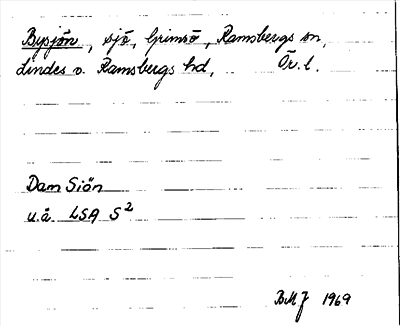 Bysjön, sjö, Grimsö, Ramsbergs sn,
Lindes o. Ramsbergs hd, Ör. l.
Dam Siön
u.å. LSA S²
BMJ 1969